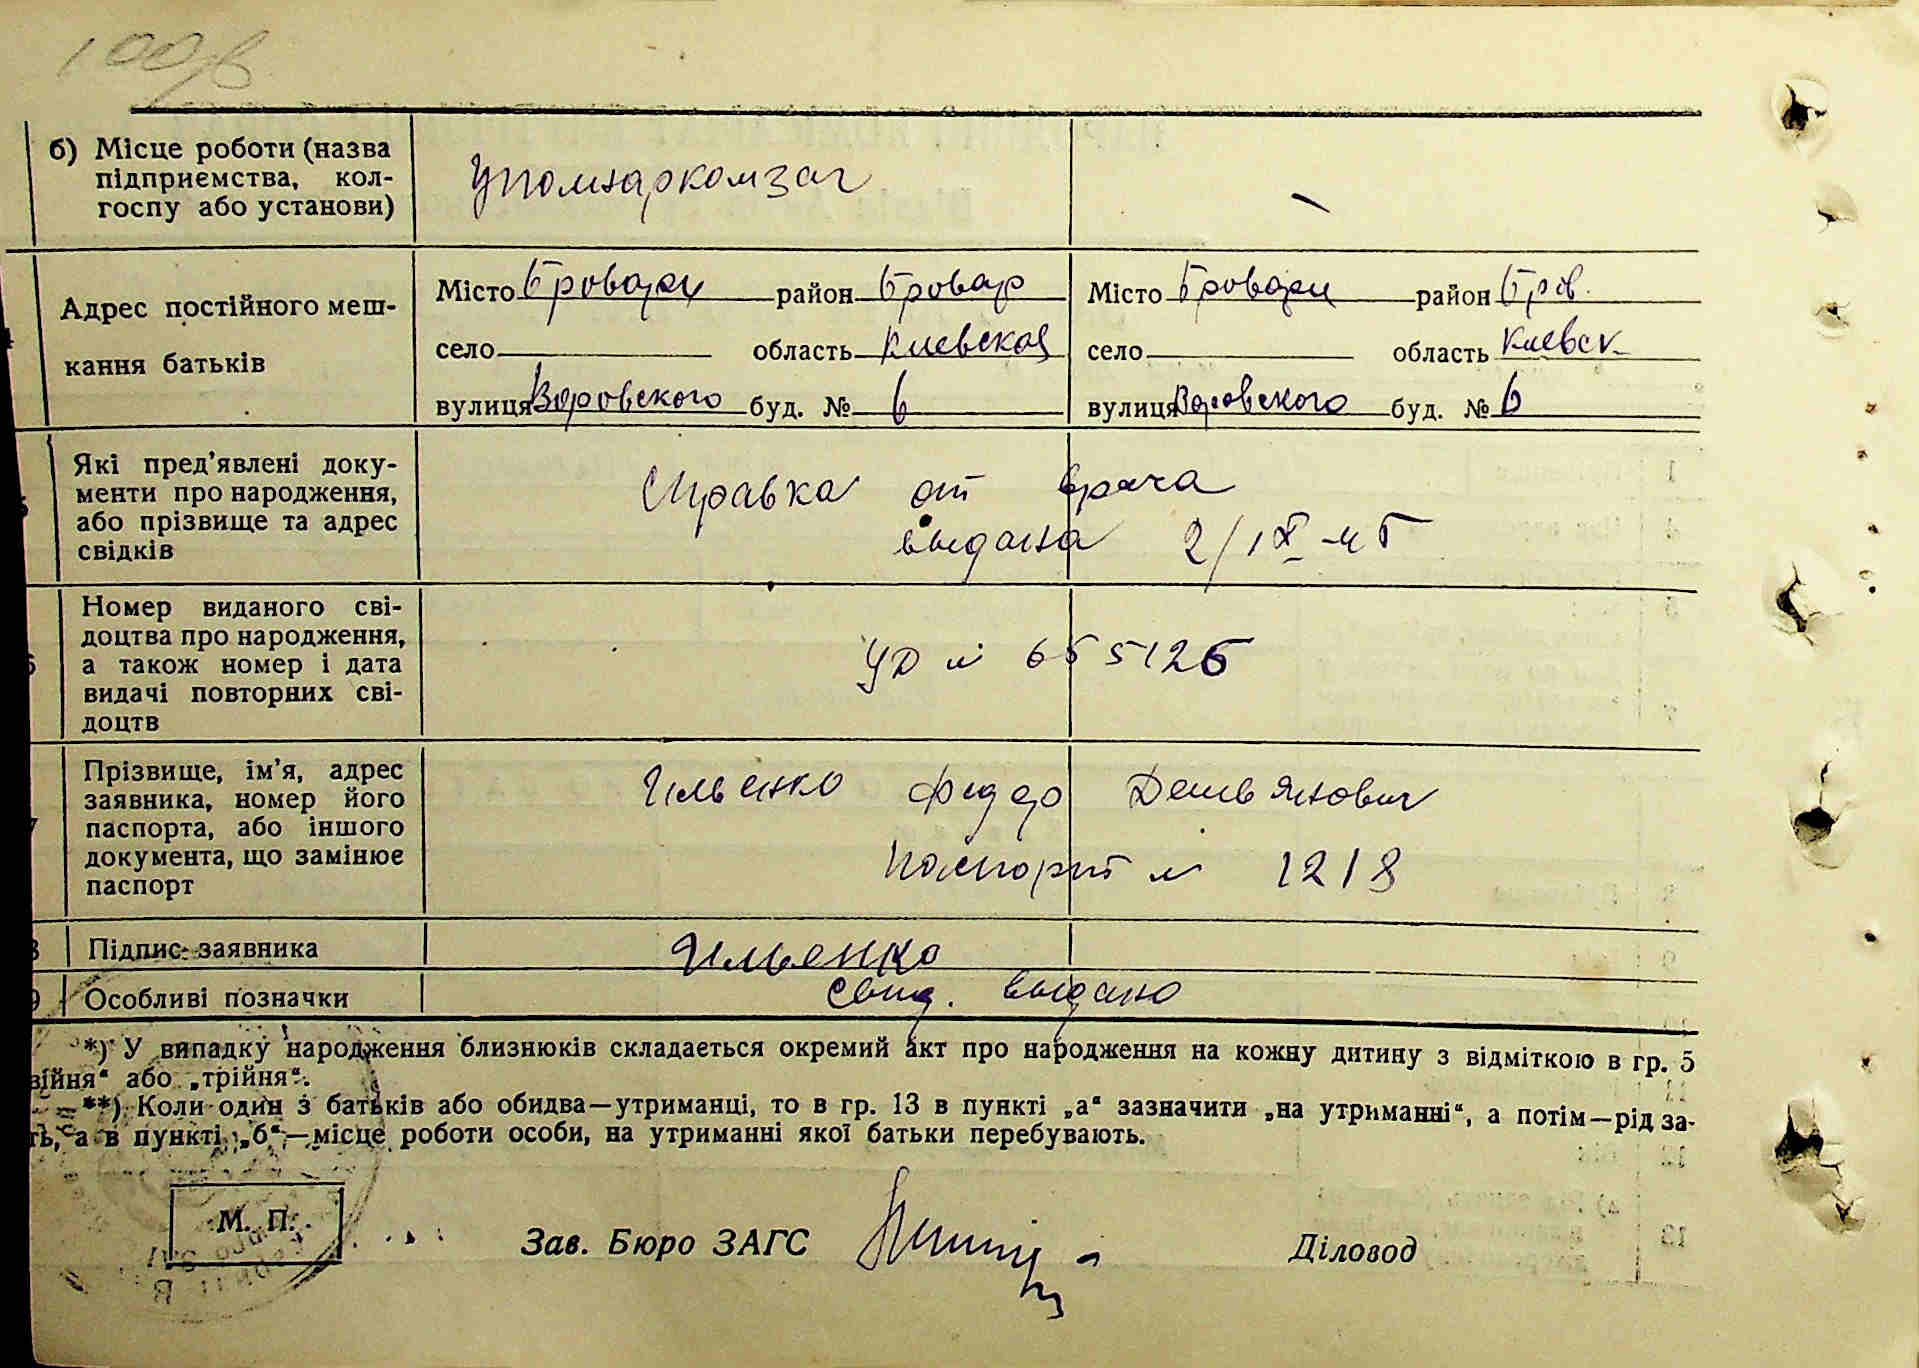 100 зв
б) Місце роботи (назва
підприємства, кол-
госпу або установи)
Упомнаркомзаг
–
Адрес постійного меш-
кання батьків
Місто Бровары район Бровар
село область Киевская
вулиця Воровского буд. № 6
Місто Бровары район Бров.
село область Киевск
вулиця Воровского буд. № 6
Які пред'явлені доку-
менти про народження,
або прізвище та адрес
свідків
Справка от врача
выдана 2/IX-4
Номер виданого сві-
доцтва про народження,
а також номер і дата
видачі повторних сві-
доцтв
УД №
Прізвище, ім'я, адрес
заявника, номер його
паспорта, або іншого
документа, що замінює
паспорт
Ильенко Федор Демьянович
Паспорт № 1218
Підпис заявника
Ильенко
9 Особливі позначки
Свид. выдано
*) У випадку народження близнюків складається окремий акт про народження на кожну дитину з відміткою в гр. 5
війня" або „трійня".
**) Коли один з батьків або обидва—утриманці, то в гр. 13 в пункті „а" зазначити „на утриманні", а потім—рід за-
ть, а в пункті „б"—місце роботи особи, на утриманні якої батьки перебувають.
М. П.
Зав. Бюро ЗАГС
Діловод